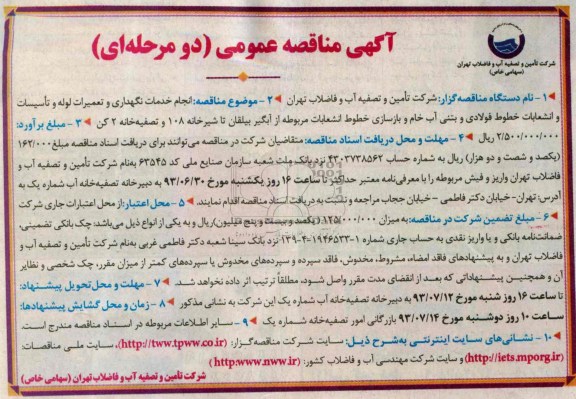 شرکت تأمین و تصفیه آب و فاضلاب تهران
(سهامی خاص)
آگهی مناقصه عمومی (دو مرحله‌ای)
۱- نام دستگاه مناقصه‌گزار: شرکت تأمین و تصفیه آب و فاضلاب تهران ۲- موضوع مناقصه: انجام خدمات نگهداری و تعمیرات لوله و تأسیسات
و انشعابات خطوط فولادی و بتنی آب خام و بازسازی خطوط انشعابات مربوطه از آبگیر بیلقان تا شیرخانه ۱۰۸ و تصفیه‌خانه ۲ کن ۳- مبلغ برآورد:
۲/۵۰۰/۰۰۰/۰۰۰ ریال ۴- مهلت و محل دریافت اسناد مناقصه: متقاضیان شرکت در مناقصه می‌توانند برای دریافت اسناد مناقصه مبلغ ۱۶۲/۰۰۰
(یکصد و شصت و دو هزار) ریال به شماره حساب ۴۳۰۲۷۳۸۵۶۲ نزد بانک ملت شعبه سازمان صنایع ملی کد ۶۳۵۴۵ به‌نام شرکت تأمین و تصفیه آب و
فاضلاب تهران واریز و فیش مربوطه را با معرفی‌نامه معتبر حداکثر تا ساعت ۱۶ روز یکشنبه مورخ ۹۳/۰۶/۳۰ به دبیرخانه تصفیه‌خانه آب شماره یک به
آدرس: تهران- خیابان دکتر فاطمی - خیابان حجاب مراجعه و نسبت به دریافت اسناد مناقصه اقدام نمایند. ۵- محل اعتبار: از محل اعتبارات جاری شرکت
۶- مبلغ تضمین شرکت در مناقصه: به میزان ۱۲۵/۰۰۰/۰۰۰ (یکصد و بیست و پنج میلیون) ریال و به یکی از انواع ذیل می‌باشد: چک بانکی تضمینی،
ضمانت‌نامه بانکی و یا واریز نقدی به حساب جاری شماره ۱-۱۹۴۶۵۳۳-۴-۱۳۹ نزد بانک سینا شعبه دکتر فاطمی غربی به‌نام شرکت تأمین و تصفیه آب و
فاضلاب تهران و به پیشنهادهای فاقد امضاء، مشروط، مخدوش، فاقد سپرده و سپرده‌های مخدوش یا سپرده‌های کمتر از میزان مقرر، چک شخصی و نظایر
آن و همچنین پیشنهاداتی که بعد از انقضای مدت مقرر واصل شود، مطلقاً ترتیب اثر داده نخواهد شد. ۷- مهلت و محل تحویل پیشنهاد:
تا ساعت ۱۶ روز شنبه مورخ ۹۳/۰۷/۱۲ به دبیرخانه تصفیه‌خانه آب شماره یک این شرکت به نشانی مذکور ۸- زمان و محل گشایش پیشنهادها:
ساعت ۱۰ روز دوشنبه مورخ ۹۳/۰۷/۱۴ بازرگانی امور تصفیه‌خانه شماره یک ۹- سایر اطلاعات مربوطه در اسناد مناقصه مندرج است.
۱۰- نشانی‌های سایت اینترنتی به‌شرح ذیل: سایت شرکت مناقصه‌گزار: (http://tww.tpww.co.ir)، سایت ملی مناقصات:
(http://iets.mporg.ir) و سایت شرکت مهندسی آب و فاضلاب کشور: (http:www.nww.ir)
شرکت تأمین و تصفیه آب و فاضلاب تهران (سهامی خاص)